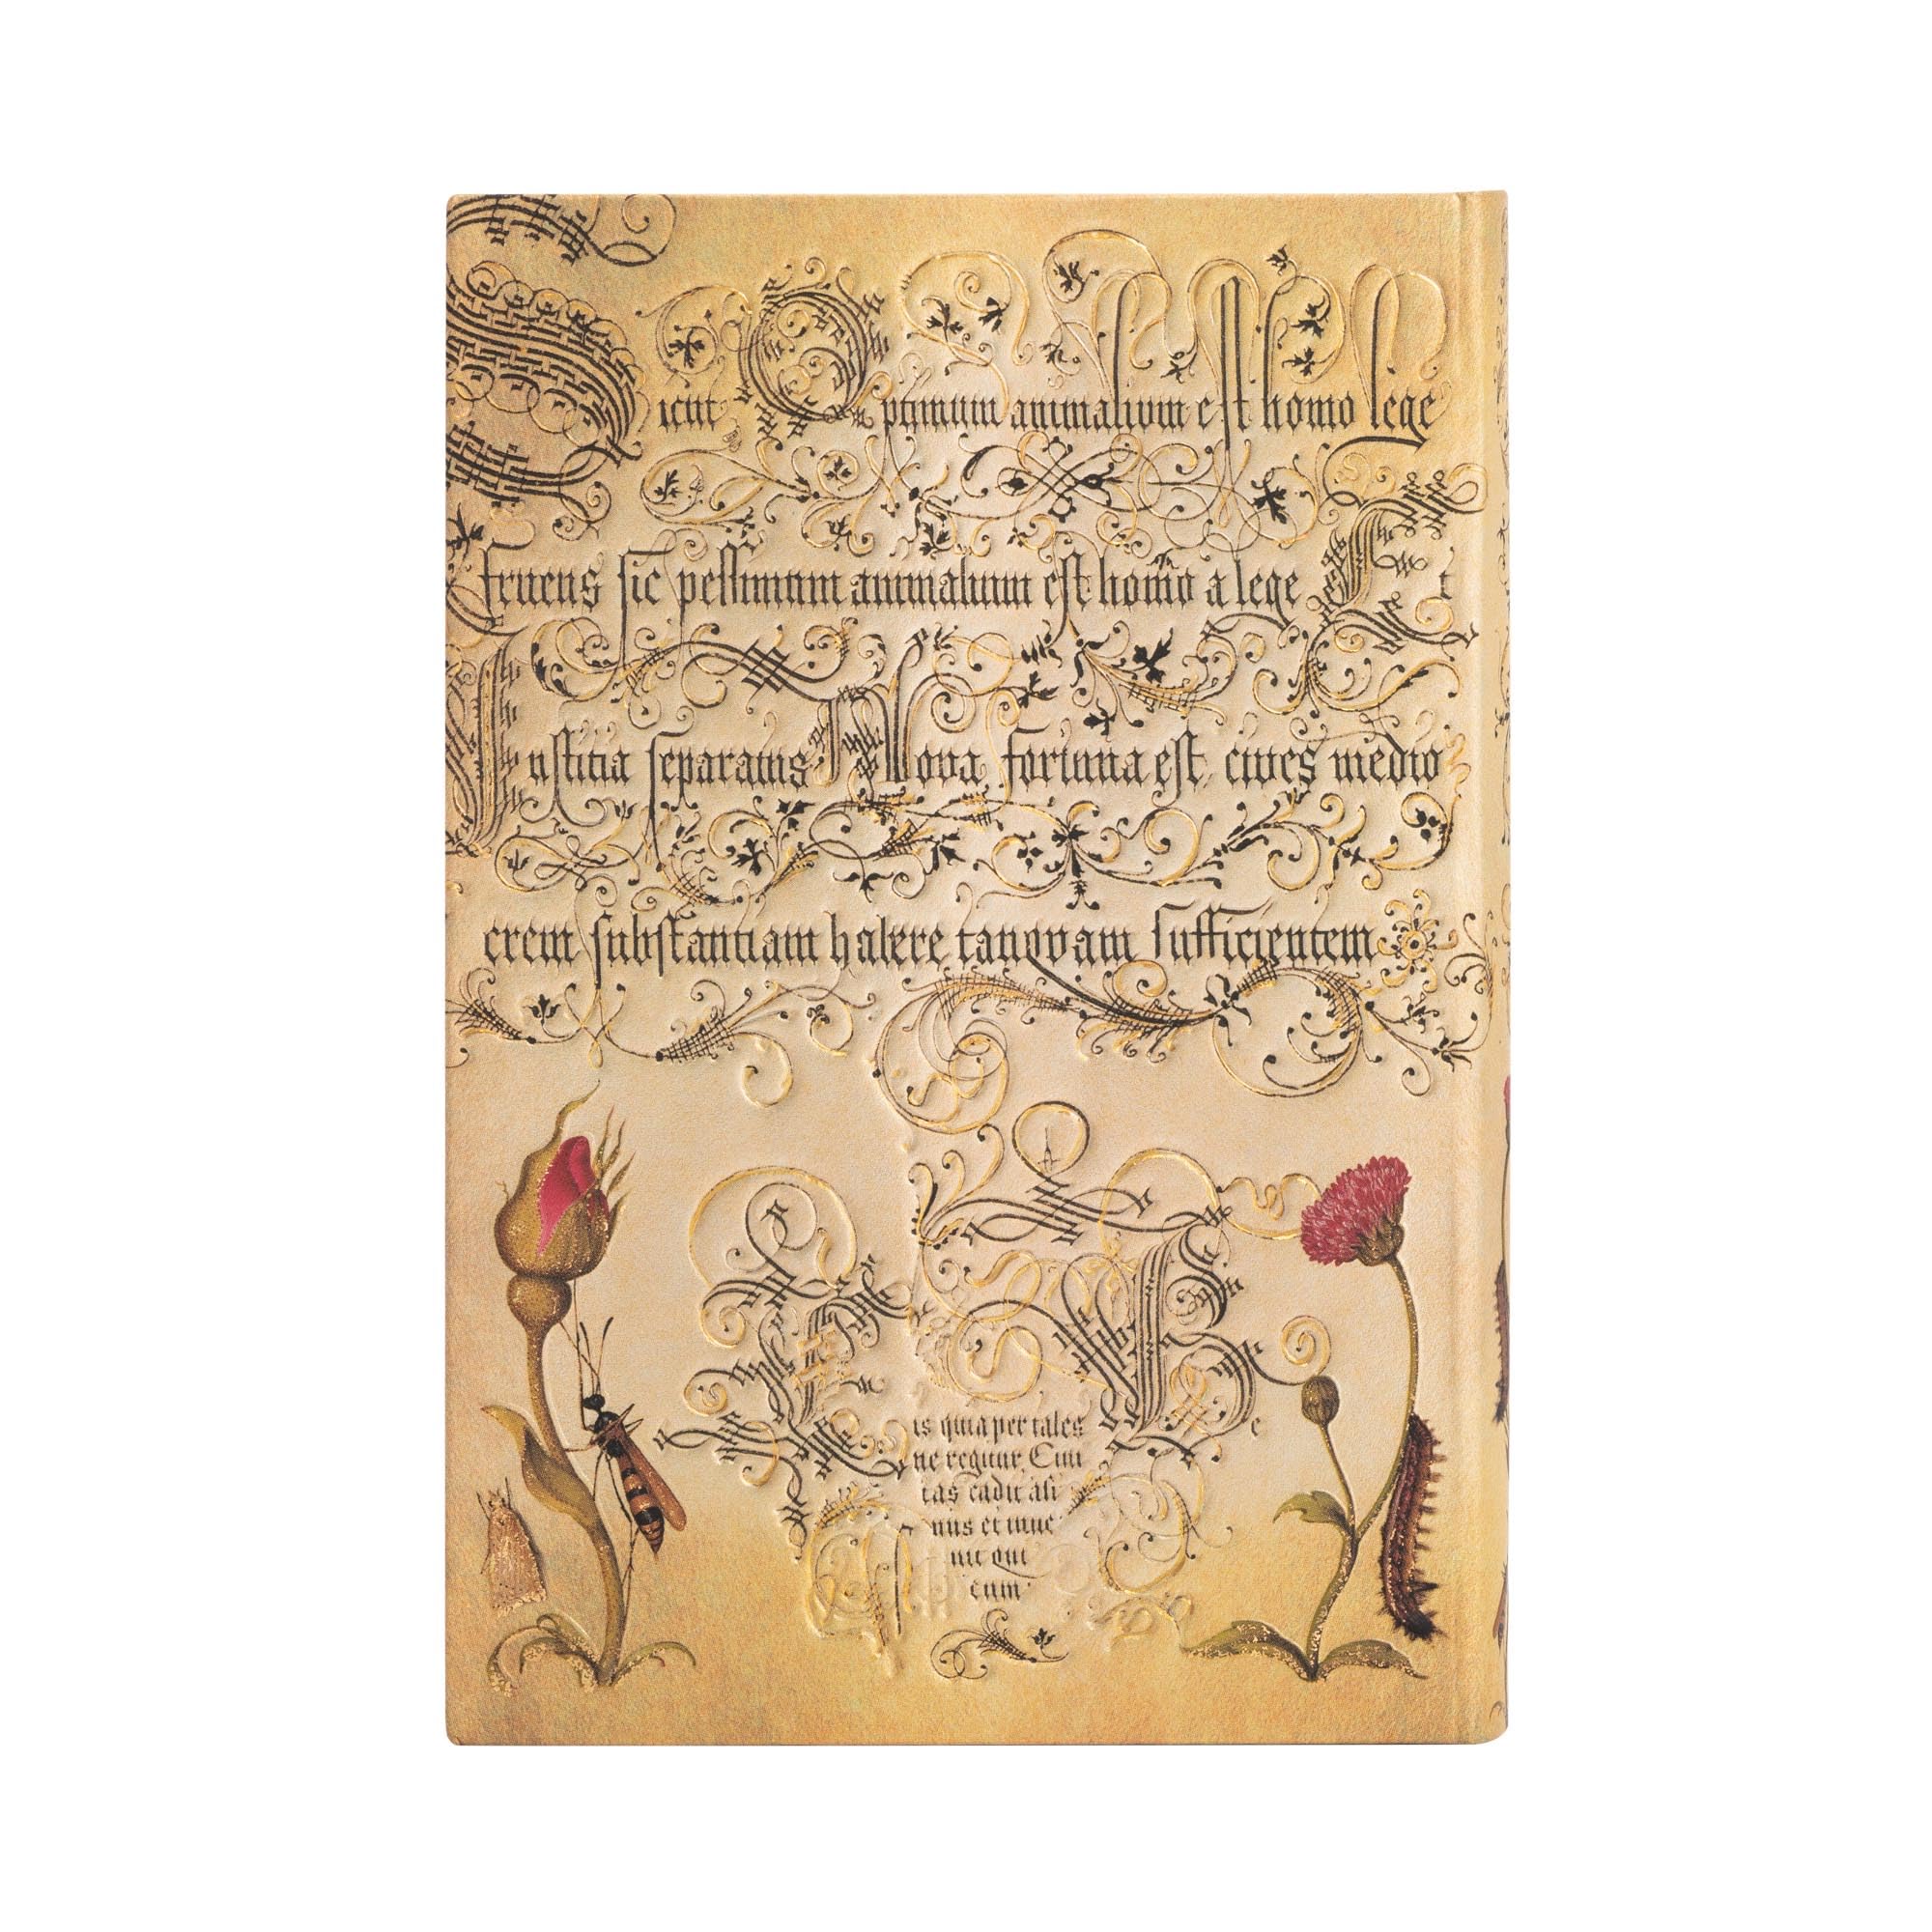 Sicut Optimum animalium est homo lege
fruens sic pessimum animalium est homo a lege Et
Iustitia separatus Nova fortuna est, cives medio
crem substantiam habere tanqvam sufficientem
is quia per tales Be
ne regitur, Civi
tas cadit asi
nus et inve
nit qui
eum